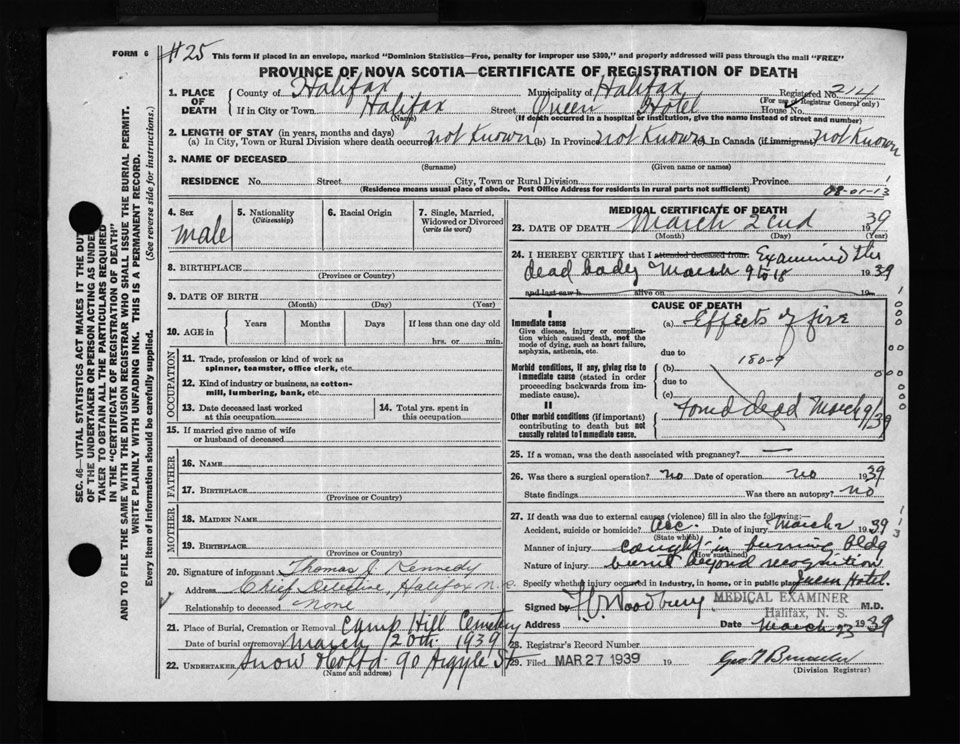 FORM 6
#25
This form if placed in an envelope, marked "Dominion Statistics—Free, penalty for improper use $300," and properly addressed will pass through the mail "FREE"
PROVINCE OF NOVA SCOTIA—CERTIFICATE OF REGISTRATION OF DEATH
1. PLACE OF DEATH County of Halifax Municipality of Halifax Registered No. 214
(For use of Registrar General only)
If in City or Town Halifax Street Queen Hotel House No.
(Name) (If death occurred in a hospital or institution, give the name instead of street and number)
2. LENGTH OF STAY (in years, months and days)
(a) In City, Town or Rural Division where death occurred not Known (b) In Province not Known (c) In Canada (if immigrant) not Known
3. NAME OF DECEASED
(Surname) (Given name or names)
RESIDENCE No. Street City, Town or Rural Division Province
(Residence means usual place of abode. Post Office Address for residents in rural parts not sufficient)
08-01-13
4. Sex male
5. Nationality (Citizenship)
6. Racial Origin
7. Single, Married, Widowed or Divorced (write the word)
8. BIRTHPLACE
(Province or Country)
9. DATE OF BIRTH
(Month) (Day) (Year)
10. AGE in Years Months Days If less than one day old
hrs. or min.
OCCUPATION
11. Trade, profession or kind of work as spinner, teamster, office clerk, etc.
12. Kind of industry or business, as cotton-mill, lumbering, bank, etc.
13. Date deceased last worked at this occupation
14. Total yrs. spent in this occupation
15. If married give name of wife or husband of deceased
FATHER
16. NAME
17. BIRTHPLACE
(Province or Country)
MOTHER
18. MAIDEN NAME
19. BIRTHPLACE
(Province or Country)
20. Signature of informant Thomas J. Kennedy
Address Chief Halifax N.S.
Relationship to deceased None
21. Place of Burial, Cremation or Removal Camp Hill Cemetery
Date of burial (or removal) March 20th 1939
22. UNDERTAKER Snow & Co Ltd 90 Argyle St
(Name and Address)
MEDICAL CERTIFICATE OF DEATH
23. DATE OF DEATH March 2 1939
(Month) (Day) (Year)
24. I HEREBY CERTIFY that I attended deceased from: Examined this
dead body March 9 to 18 1939
and last saw h alive on 19
CAUSE OF DEATH
I
Immediate cause
Give disease, injury or complication which caused death, not the mode of dying, such as heart failure, asphyxia, asthenia, etc.
(a) Effects of fire
due to
180-9
Morbid conditions, if any, giving rise to immediate cause (stated in order proceeding backwards from immediate cause).
(b)
due to
(c)
Found dead March 9/39
II
Other morbid conditions (if important) contributing to death but not causally related to immediate cause.
25. If a woman, was the death associated with pregnancy? —
26. Was there a surgical operation? no Date of operation no 1939
State findings Was there an autopsy? no
27. If death was due to external causes (violence) fill in also the following:—
Accident, suicide or homicide? Acc. Date of injury March 2 1939
(State which)
Manner of injury caught in burning bldg
(How sustained)
Nature of injury burnt beyond recognition
Specify whether injury occurred in industry, in home, or in public place Queen Hotel
Signed by Woodbury M.D.
MEDICAL EXAMINER
Halifax, N. S.
Address Date March 23 1939
28. Registrar's Record Number
29. Filed MAR 27 1939 19
(Division Registrar)
SEC. 46—VITAL STATISTICS ACT MAKES IT THE DUTY
OF THE UNDERTAKER OR PERSON ACTING AS UNDER-
TAKER TO OBTAIN ALL THE PARTICULARS REQUIRED
IN THE "CERTIFICATE OF REGISTRATION OF DEATH"
AND TO FILE THE SAME WITH THE DIVISION REGISTRAR WHO SHALL ISSUE THE BURIAL PERMIT.
WRITE PLAINLY WITH UNFADING INK. THIS IS A PERMANENT RECORD.
Every item of information should be carefully supplied. (See reverse side for instructions.)